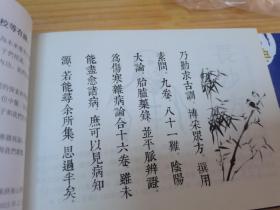 乃勤求古訓 博采眾方 撰用
素問 九卷 八十一難 陰陽
大論 胎臚藥錄 並平脈辨證
為傷寒雜病論合十六卷 雖未
能盡愈諸病 庶可以見病知
源 若能尋余所集 思過半矣